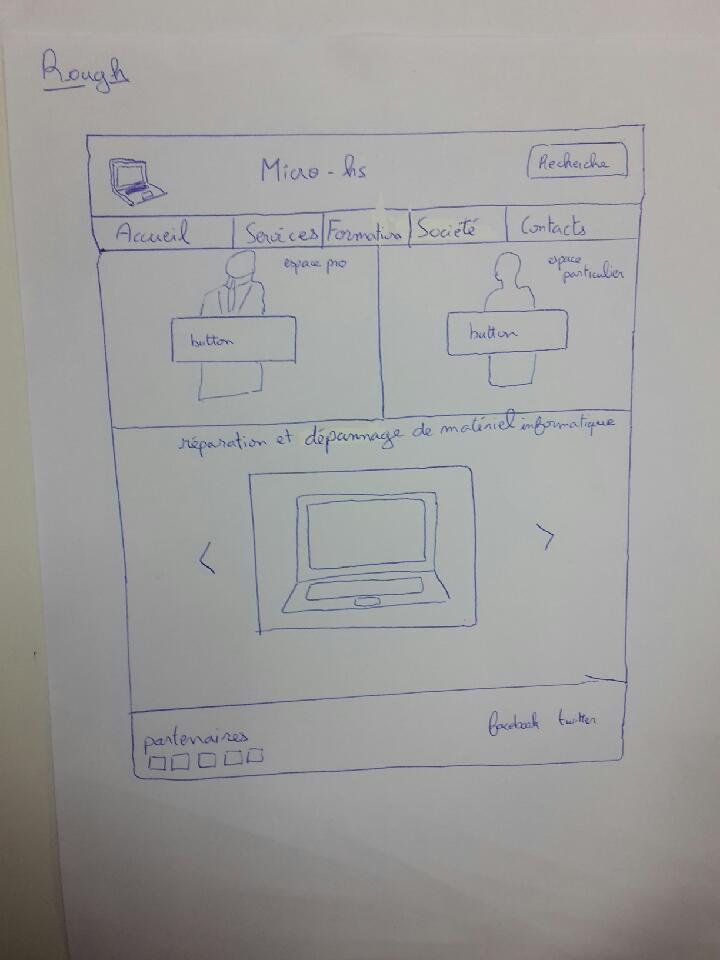 Rough
Micro-hs
Recherche
Accueil Services Formation Société Contacts
espace pro
button
espace
particulier
button
réparation et dépannage de matériel informatique
< >
partenaires
facebook twitter